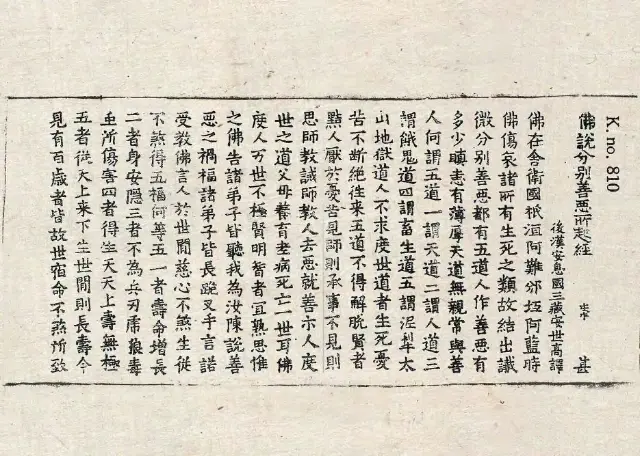 K. no. 810
佛說分別善惡所起經 甚
後漢安息國三藏安世高譯
佛在舍衛國祇洹阿難邠坻阿藍時
佛傷哀諸所有生死之類故結出讖
微分別善惡都有五道人作善惡有
多少瞋恚有薄厚天道無親常與善
人何謂五道一謂天道二謂人道三
謂餓鬼道四謂畜生道五謂泥犁太
山地獄道人不求度世道者生死憂
苦不斷絕往來五道不得解脫賢者
黠人厭於憂苦見師則承事不見則
思師教誡師教人去惡就善示人度
世之道父母養育老病死亡一世耳佛
度人万世不極賢明智者宜熟思惟
之佛告諸弟子皆聽我為汝陳說善
惡之禍福諸弟子皆長跪叉手言諾
受教佛言人於世間慈心不煞生從
不煞得五福何等五一者壽命增長
二者身安隱三者不為兵刃虎狼毒
虫所傷害四者得生天天上壽無極
五者從天上来下生世間則長壽今
見有百歲者皆故世宿命不煞所致